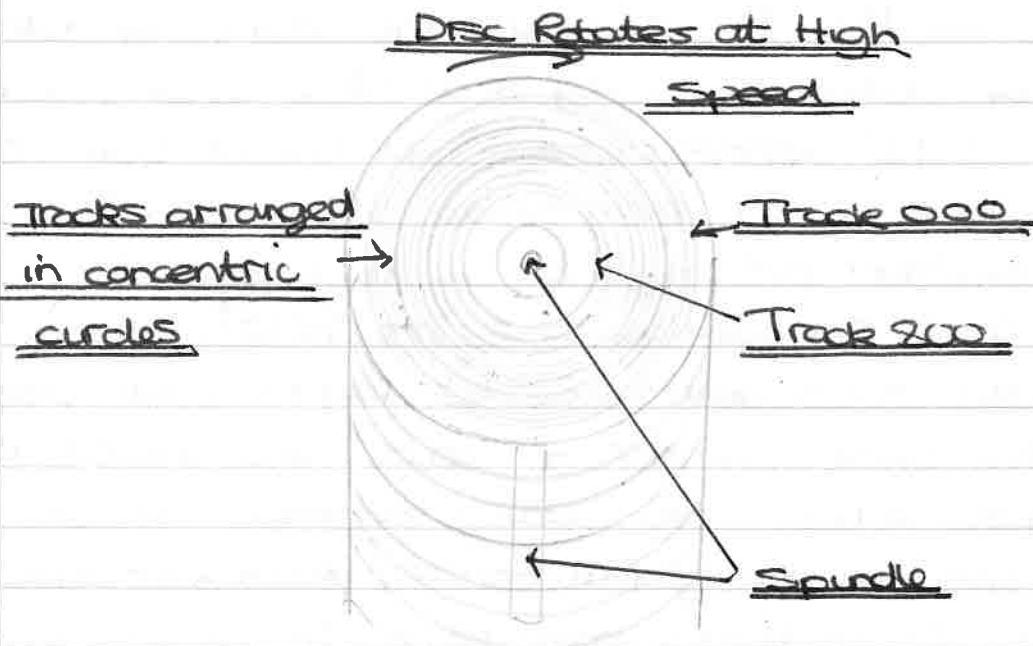 Disc Rotates at High
Speed
Tracks arranged
in concentric
circles
Track 000
Track 200
Spindle